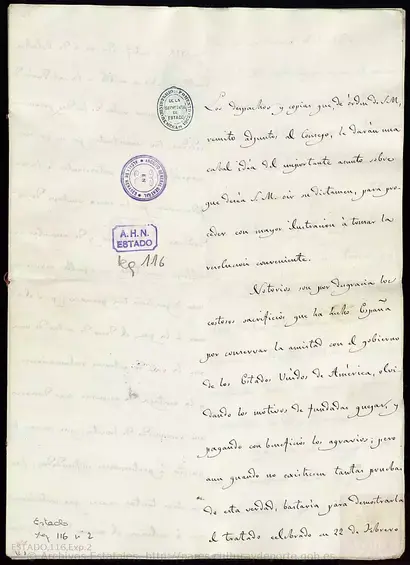 Los despachos y copias que, de órden de S.M,
remito adjuntos al Consejo, le darán una
cabal idea del importante asunto sobre
que desea S.M. oir su dictamen, para pro-
ceder con mayor ilustracion à tomar la
resolucion conveniente.
Notorios son por desgracia los
costosos sacrificios que ha hecho España
por conservar la amistad con el gobierno
de los Estados Unidos de América, olvi-
dando los motivos de fundadas quejas, y
pagando con beneficios los agravios; pero
aun quando no existiesen tantas pruebas
de esta verdad, bastaria para demostrarla
el tratado celebrado en 22 de Febrero
DE LA
SECRETARIA
DE
ESTADO
A.H.N.
ESTADO
leg 116
Estado
leg 116 n 2
ESTADO,116,Exp.2